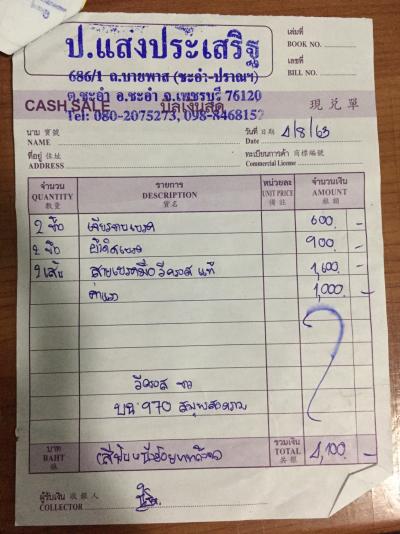 ป.แสงประเสริฐ
686/1 ถ.บายพาส (ชะอำ-ปราณฯ)
ต.ชะอำ อ.ชะอำ จ.เพชรบุรี 76120
Tel: 080-2075273, 098-8468152
เล่มที่
BOOK NO.
เลขที่
BILL NO.
CASH SALE บิลเงินสด 現兌單
นาม 寶號
NAME
วันที่ 日期 4/8/63
Date
ที่อยู่ 住址
ADDRESS
ทะเบียนการค้า 商標編號
Commercial License
จำนวน รายการ หน่วยละ จำนวนเงิน
QUANTITY DESCRIPTION UNIT PRICE AMOUNT
數量 貨名 備註 銀額
2 ข้อ เจียรจานเบรค 600 -
2 ข้อ ผ้าดิสเบรค 900 -
2 เส้น สายเบรคมือ วีครอส แท้ 1,600 -
ค่าแรง 1,000 -
วีครอส ขาว
บน 970 สมุทรสงคราม
บาท (สี่พันหนึ่งร้อยบาทถ้วน) รวมเงิน 4,100 -
BAHT TOTAL
銖 共銀
ผู้รับเงิน 收銀人
COLLECTOR